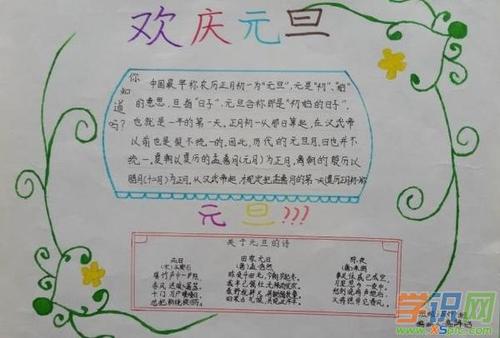 欢庆元旦
你知道吗?
中国最早称农历正月初一为"元旦",元是"初"、"始"
的意思,旦指"日子",元旦合称即是"初始的日子",
也就是一年的第一天。正月初一从那日算起,在汉武帝
以前也是很不统一的。因此,历代的元旦月、日也并不
统一。夏朝以夏历的孟喜月(元月)为正月,商朝的殷历以
腊月(十二月)为正月,从汉武帝起,才规定把孟喜月的第一天
元旦???
关于元旦的诗
元日
(宋)王安石
爆竹声中一岁除,
春风送暖入屠苏。
千门万户曈曈日,
总把新桃换旧符。
田家元日
(唐)孟浩然
昨夜斗回北,今朝岁起东。
我年已强仕,无禄尚忧农。
学识网
www.xSpic.com